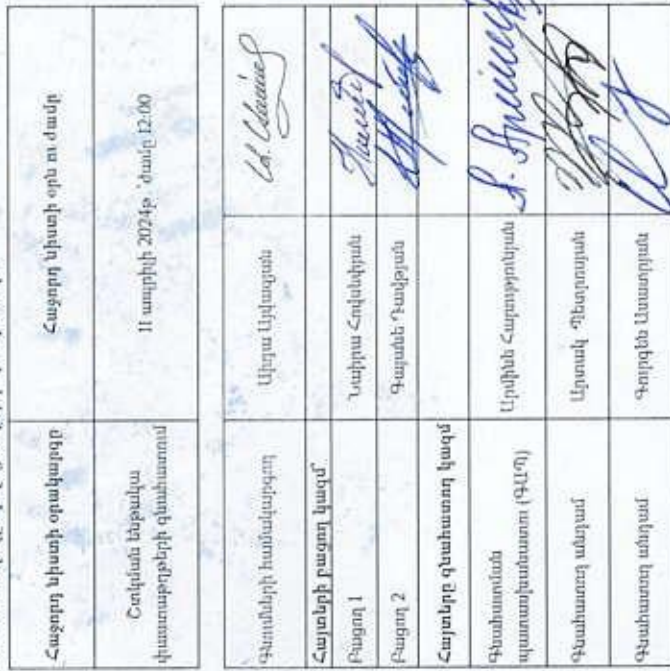 Հաջորդ նիստի օրակարգը
Հաջորդ նիստի օրն ու ժամը
Շտկման ենթակա
փաստաթղթերի գնահատում
11 ապրիլի 2024թ․՝ ժամը 12:00
Գնումների համակարգող
Աիդա Այվազյան
Հայտերի բացող կազմ՝
Բացող 1
Նաիրա Հովսեփյան
Բացող 2
Գայանե Դավթյան
Հայտերը գնահատող կազմ
Գնահատման
պատասխանատու (ԳԱՊ)
Արփինե Հարությունյան
Գնահատող անդամ
Արտակ Պետրոսյան
Գնահատող անդամ